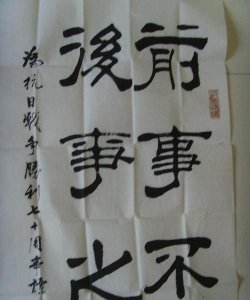 前事不
後事之
為抗日戰爭勝利七十周年